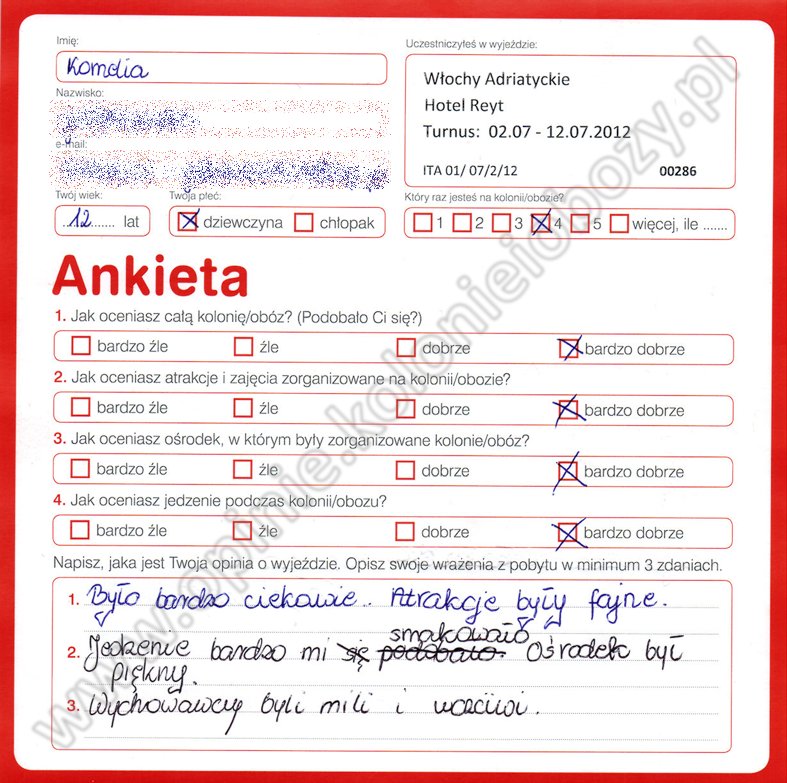 Imię:
Kornelia
Uczestniczyłeś w wyjeździe:
Włochy Adriatyckie
Hotel Reyt
Turnus: 02.07 - 12.07.2012
ITA 01/ 07/2/12 00286
Nazwisko:
e-mail:
Twój wiek:
12 lat
Twoja płeć:
dziewczyna chłopak
Który raz jesteś na kolonii/obozie?
1 2 3 4 5 więcej, ile .......
Ankieta
1. Jak oceniasz całą kolonię/obóz? (Podobało Ci się?)
bardzo źle źle dobrze bardzo dobrze
2. Jak oceniasz atrakcje i zajęcia zorganizowane na kolonii/obozie?
bardzo źle źle dobrze bardzo dobrze
3. Jak oceniasz ośrodek, w którym były zorganizowane kolonie/obóz?
bardzo źle źle dobrze bardzo dobrze
4. Jak oceniasz jedzenie podczas kolonii/obozu?
bardzo źle źle dobrze bardzo dobrze
Napisz, jaka jest Twoja opinia o wyjeździe. Opisz swoje wrażenia z pobytu w minimum 3 zdaniach.
1. Było bardzo ciekawie.. Atrakcje były fajne.
smakowało
2. Jedzenie bardzo mi się podobało. Ośrodek był
piękny.
3. Wychowawcy byli mili i uczciwi.
www.opinie.kolonieiobozy.pl